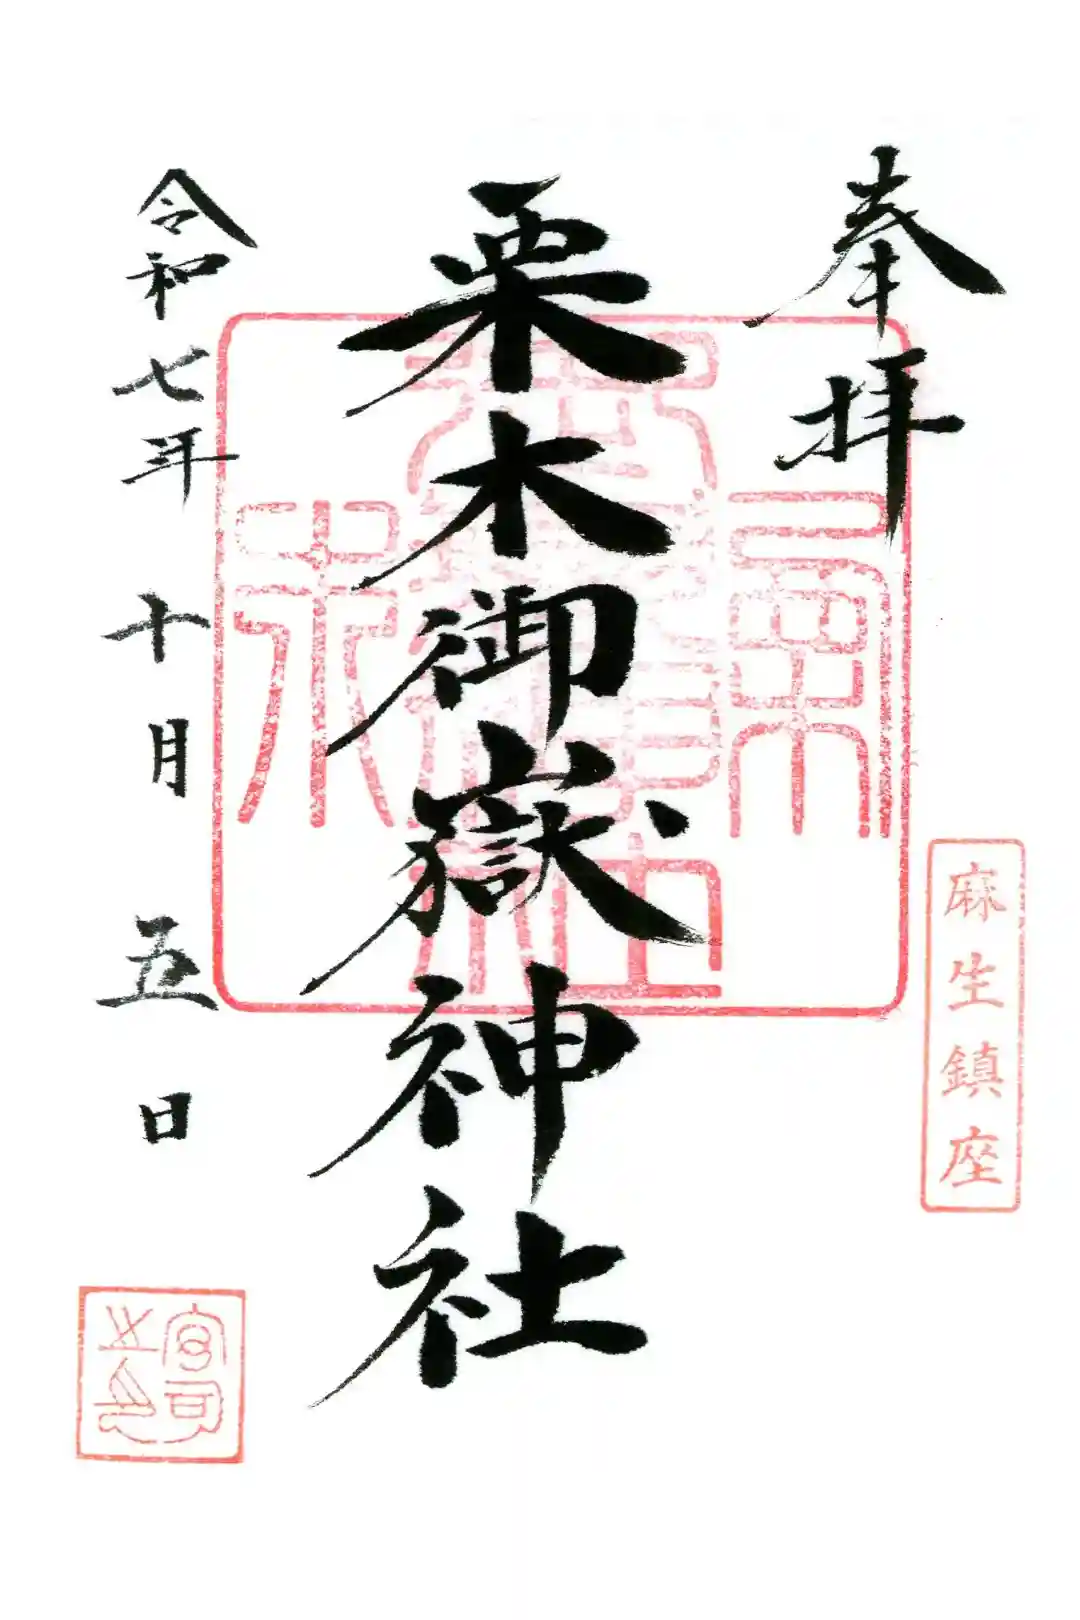 奉拝
麻生鎮座
栗木御嶽神社
令和七年十月五日
宮司之印